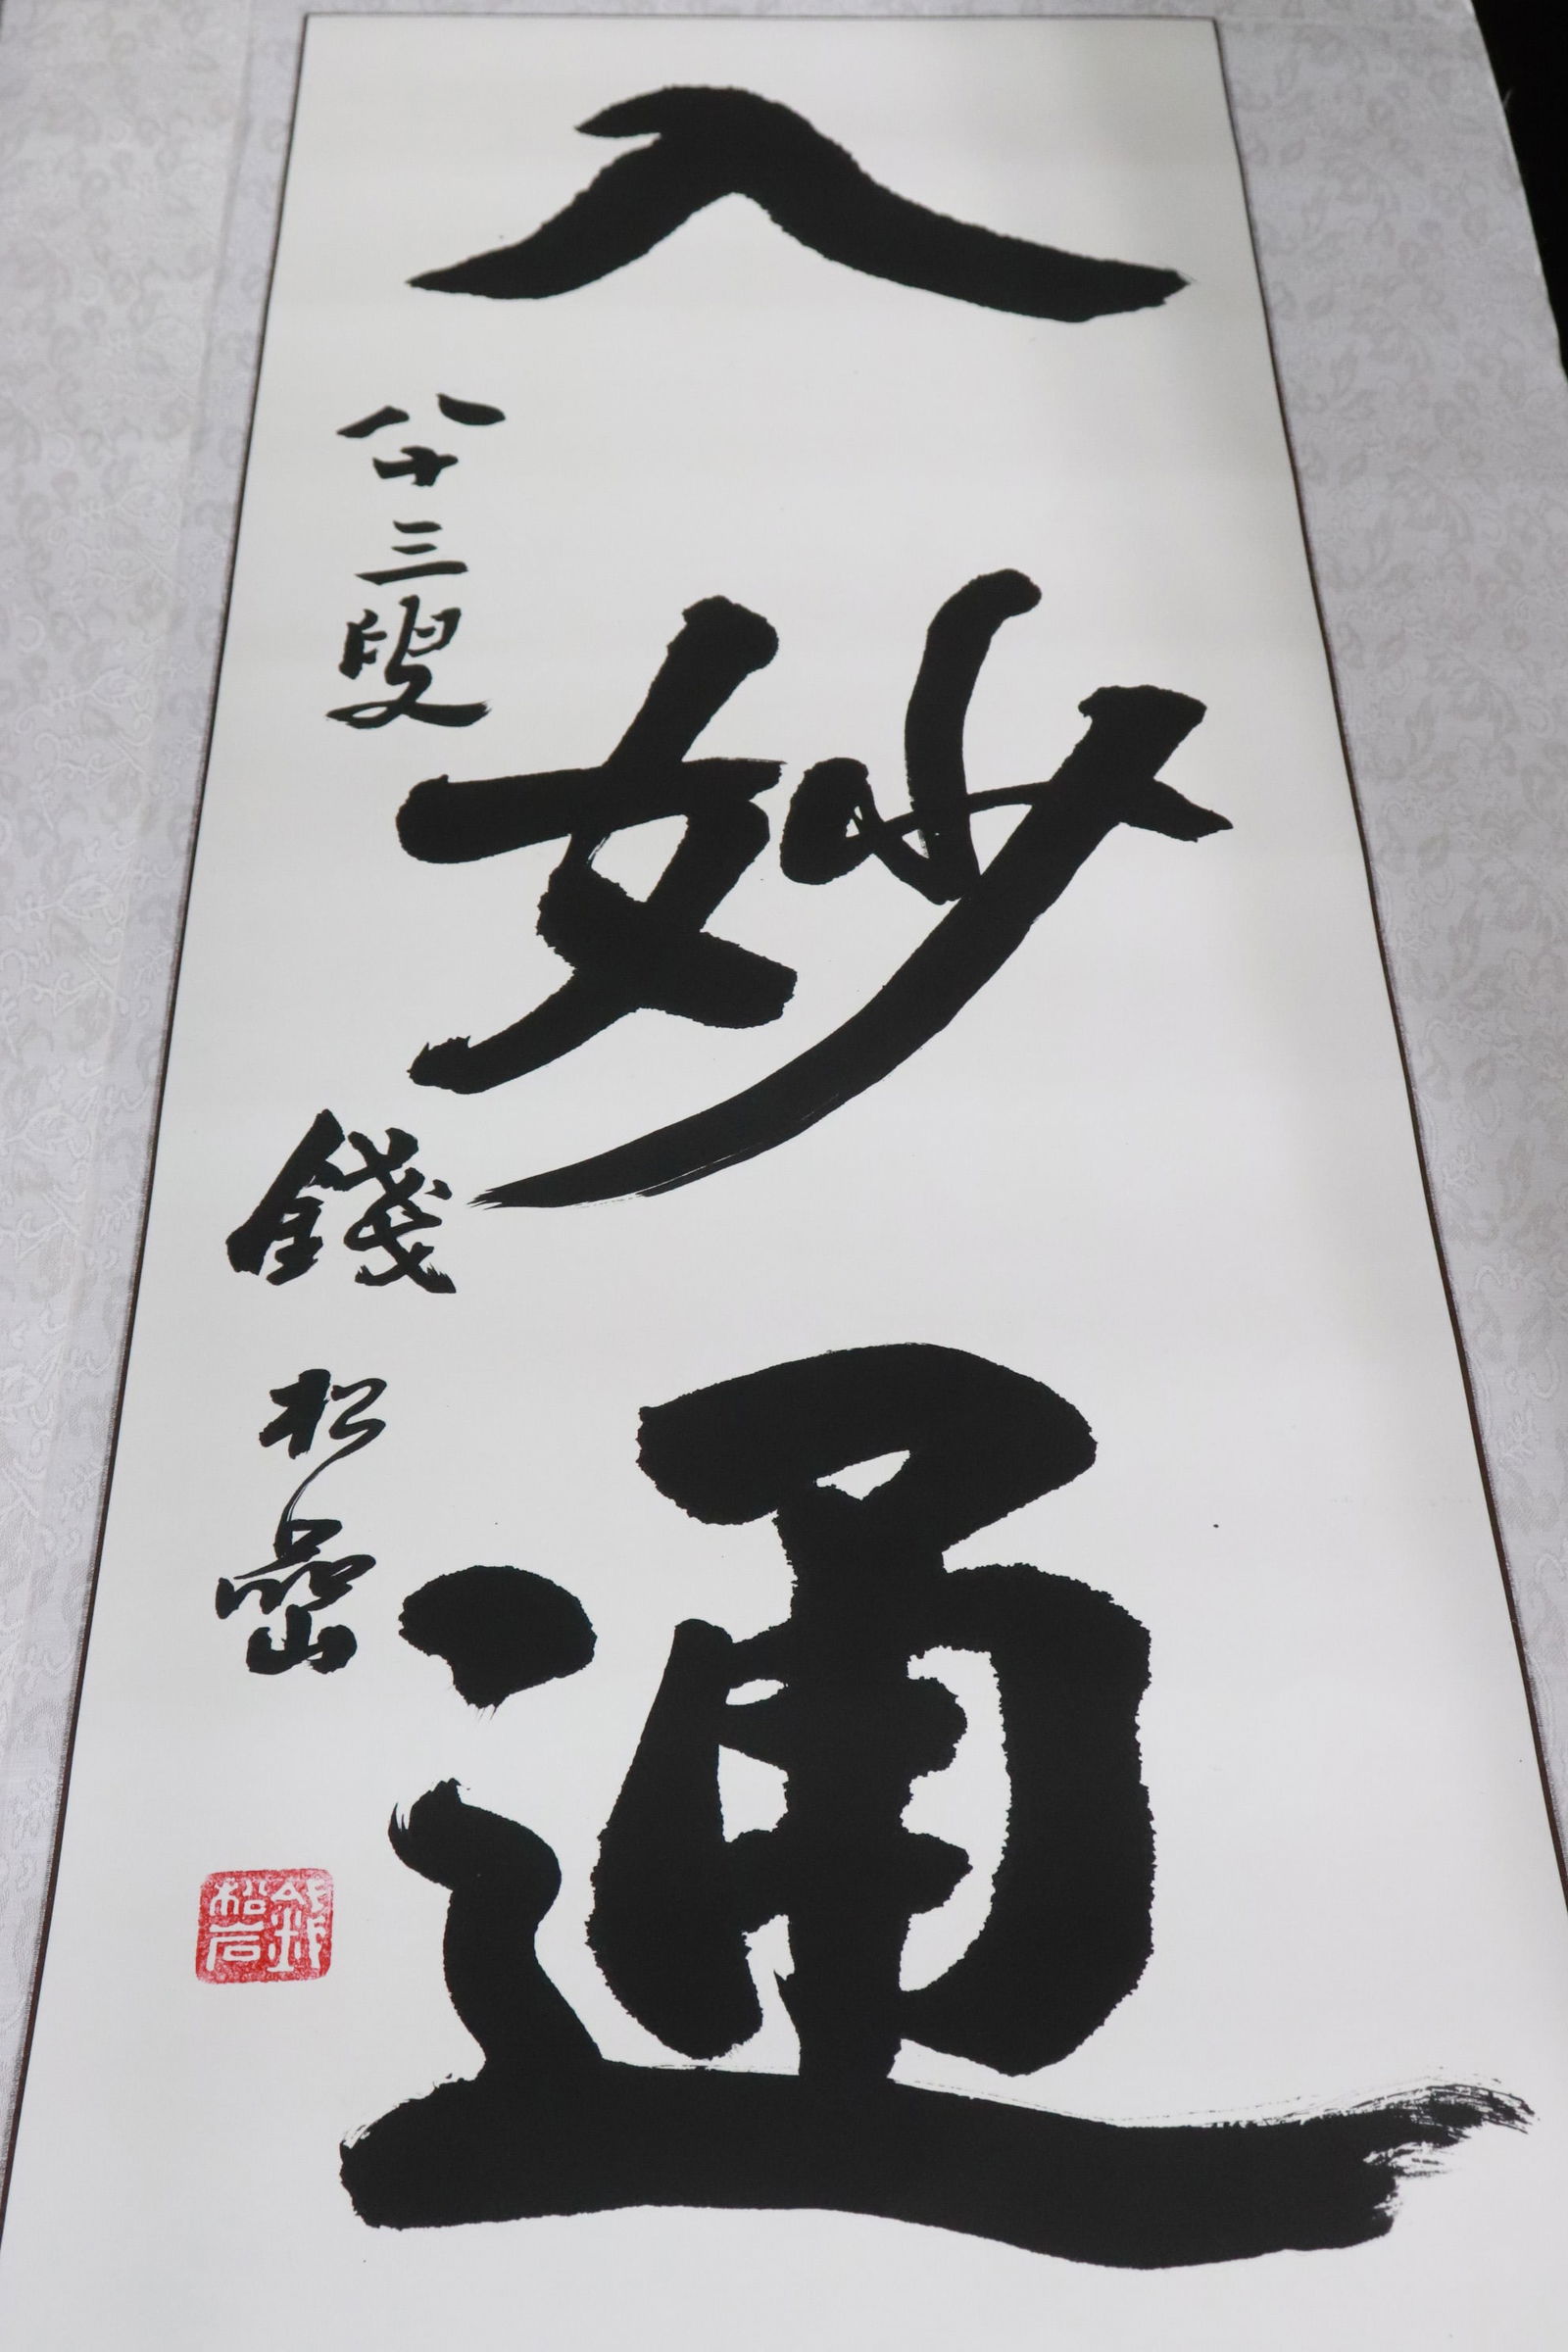 入妙通
八十三叟
錢松嵒
錢松岩